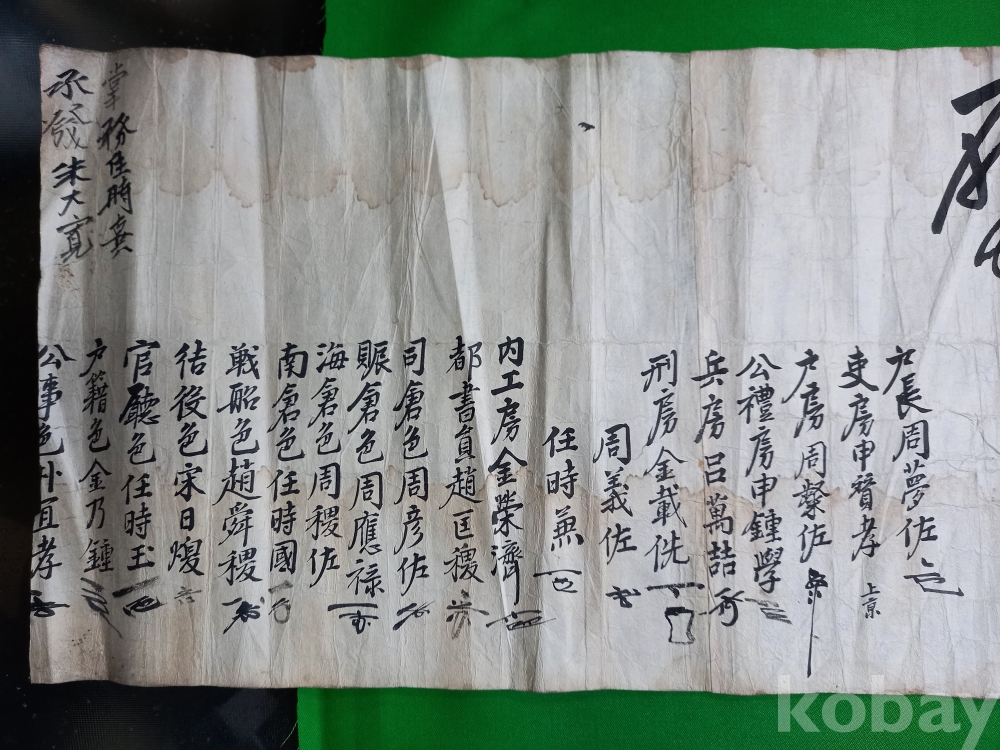 戶長周夢佐
吏房申寶孝 上京
戶房周燦佐
公禮房申鍾學
兵房呂萬喆
刑房金載侁
周義佐
任時燕
內工房金榮濟
都書員趙匡稷
司倉色周彦佐
賑倉色周應祿
海倉色周稷佐
南倉色任時國
戰船色趙舜稷
結役色宋日煥
官廳色任時玉
戶籍色金乃鍾
公事色朴宜孝
掌務任時
承發朱大寬
kobay